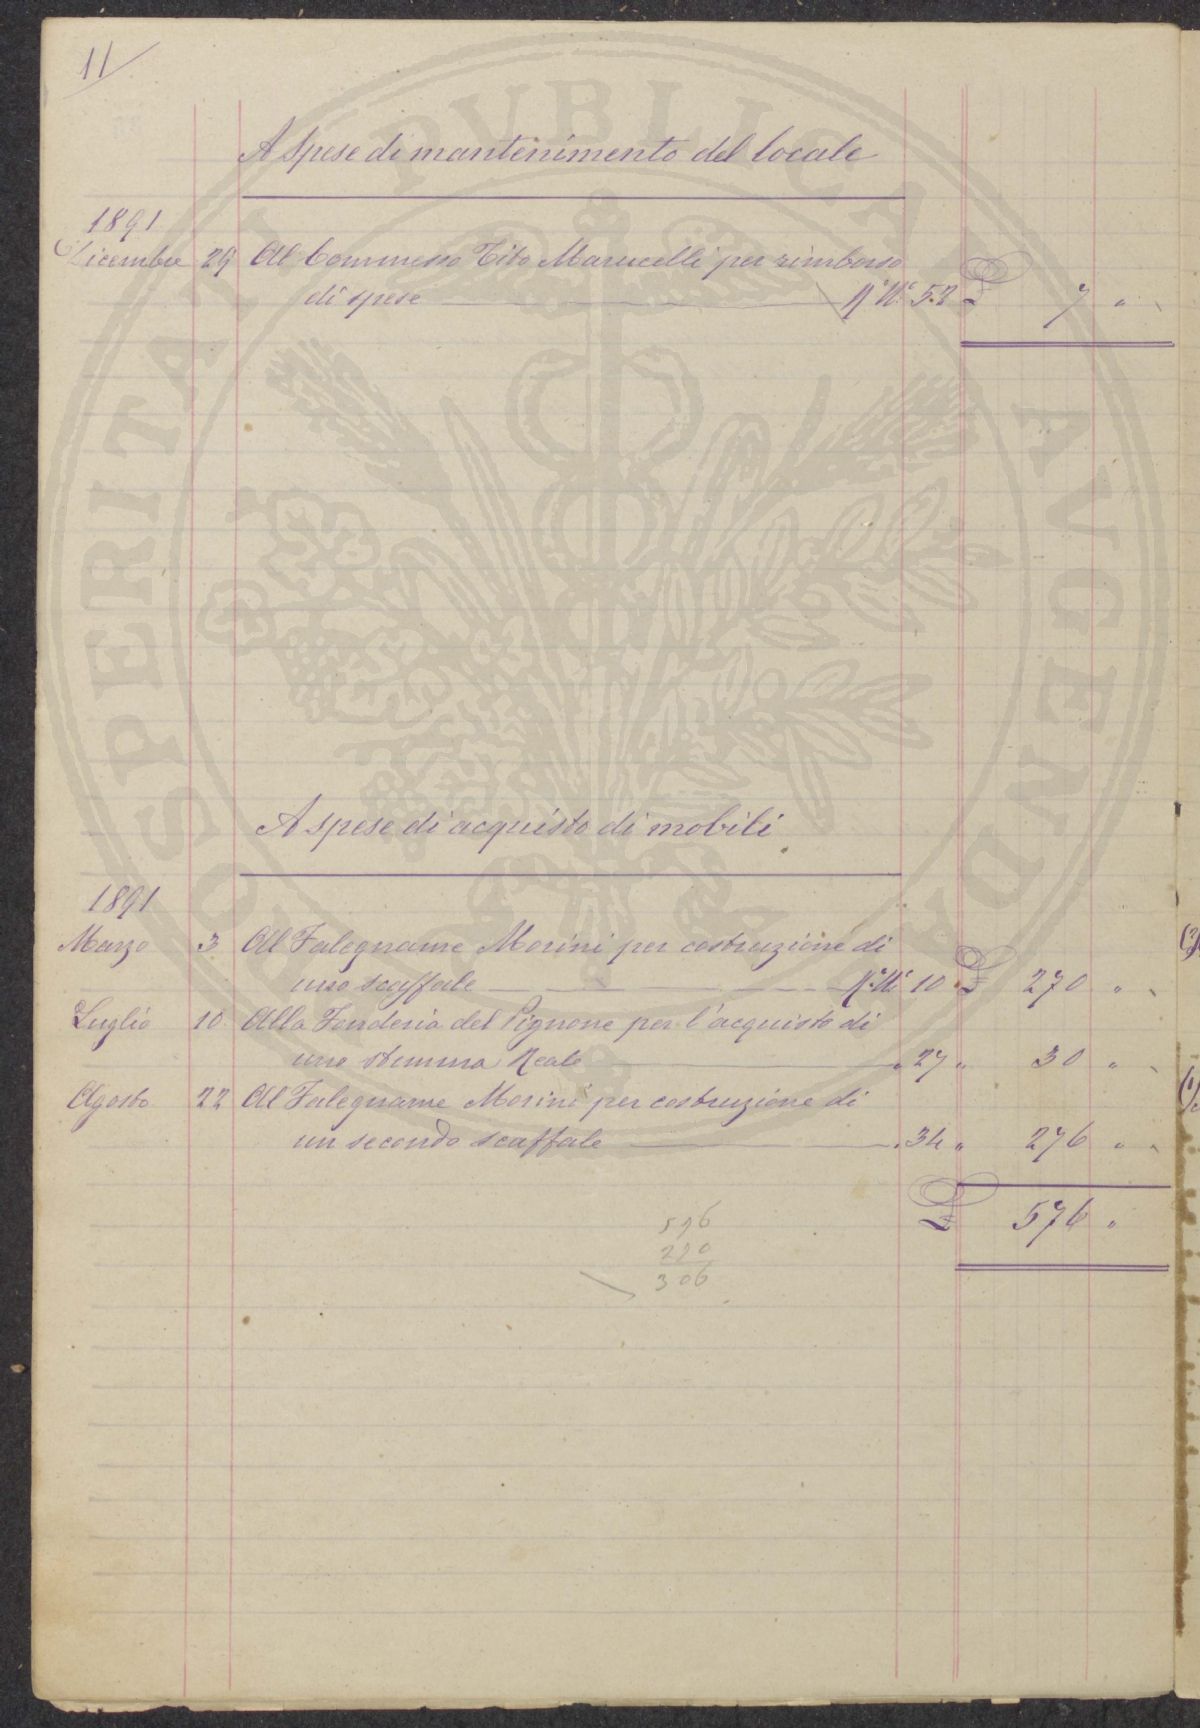 11
A Spese di mantenimento del locale
1891
Dicembre 29 Al Commesso Tito Marucelli per rimborso
di spese N° 52 £ 7 "
A spese di acquisto di mobili
1891
Marzo 3 Al Falegname Morini per costruzione di
uno scaffale 10 £ 270 "
Luglio 10 Alla Fonderia del Pignone per l'acquisto di
uno stemma Reale " 27 " 30 "
Agosto 22 Al Falegname Morini per costruzione di
un secondo scaffale " 34 " 276 "
£ 576 "
576
270
306
PROSPERITATI PVBLICAE AVGENDAE